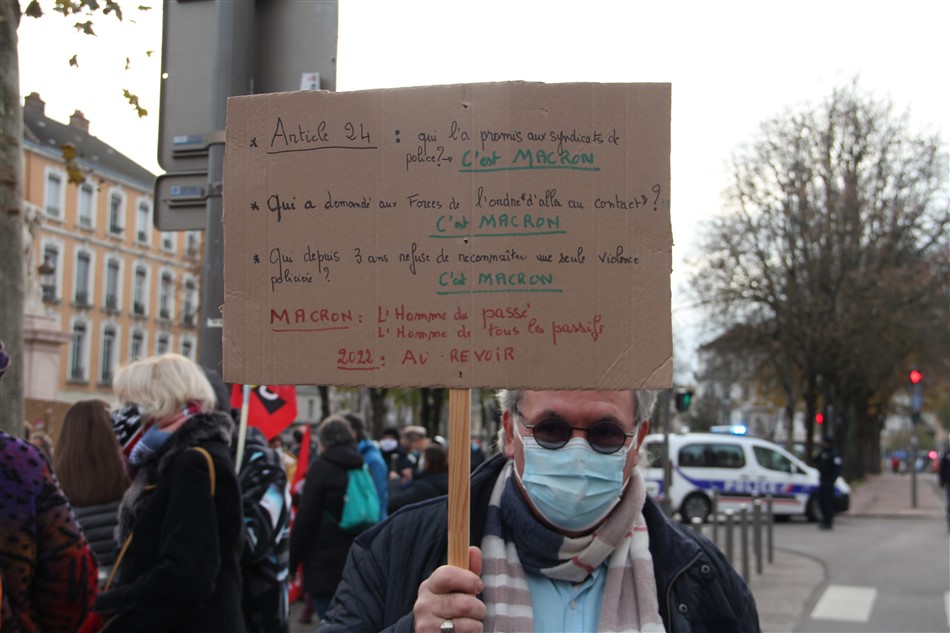 * Article 24 : qui l'a promis aux syndicats de
police? → C'est MACRON
* Qui a demandé aux Forces de l'ordre "d'aller au contact" ?
C'est MACRON
* Qui depuis 3 ans refuse de reconnaître une seule violence
policière ?
C'est MACRON
MACRON : L'Homme du passé
L'Homme de tous les passifs
2022 : AU REVOIR
POLICE